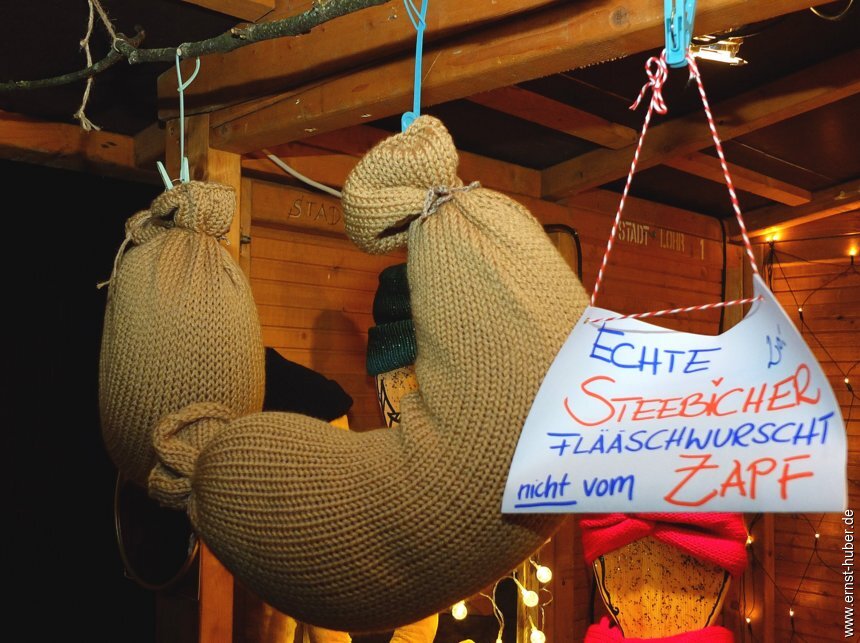 STAD
STADT LOHR 1
ECHTE
STEEBICHER
FLÄÄSCHWURSCHT
nicht vom ZAPF
www.ernst-huber.de